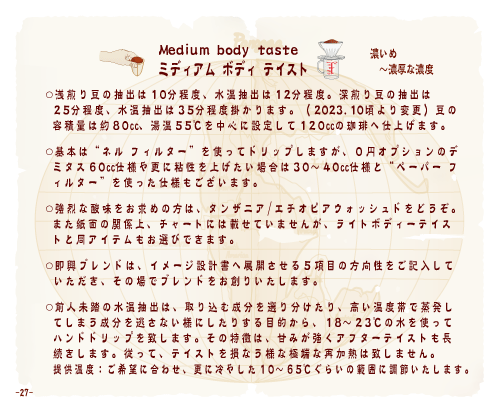 Medium body taste
ミディアム ボディ テイスト
濃いめ
～濃厚な濃度
○浅煎り豆の抽出は10分程度、水温抽出は12分程度。深煎り豆の抽出は
25分程度、水温抽出は35分程度掛かります。(2023.10頃より変更) 豆の
容積量は約80cc、湯温55℃を中心に設定して120ccの珈琲へ仕上げます。
○基本は“ネル フィルター”を使ってドリップしますが、0円オプションのデ
ミタス60cc仕様や更に粘性を上げたい場合は30～40cc仕様と“ペーパー フ
ィルター”を使った仕様もございます。
○強烈な酸味をお求めの方は、タンザニア/エチオピアウォッシュドをどうぞ。
また紙面の関係上、チャートには載せていませんが、ライトボディーテイス
トと同アイテムもお選びできます。
○即興ブレンドは、イメージ設計書へ展開させる5項目の方向性をご記入して
いただき、その場でブレンドをお創りいたします。
○前人未踏の水温抽出は、取り込む成分を選り分けたり、高い温度帯で蒸発し
てしまう成分を逃さない様にしたりする目的から、18～23℃の水を使って
ハンドドリップを致します。その特徴は、甘みが強くアフターテイストも長
続きします。従って、テイストを損なう様な極端な再加熱は致しません。
提供温度：ご希望に合わせ、更に冷やした10～65℃ぐらいの範囲に調節いたします。
-27-